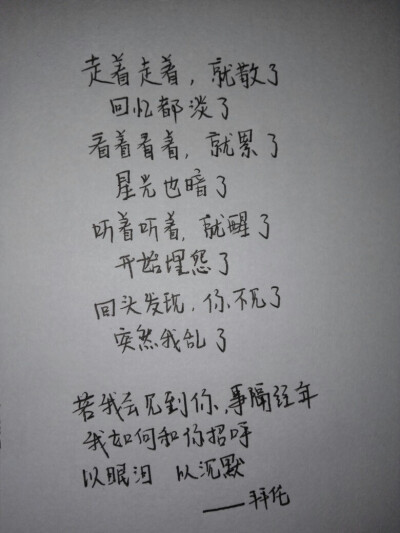 走着走着，就散了
回忆都淡了
看着看着，就累了
星光也暗了
听着听着，就醒了
开始埋怨了
回头发现，你不见了
突然我乱了
若我会见到你，事隔经年
我如何和你招呼
以眼泪 以沉默
——拜伦